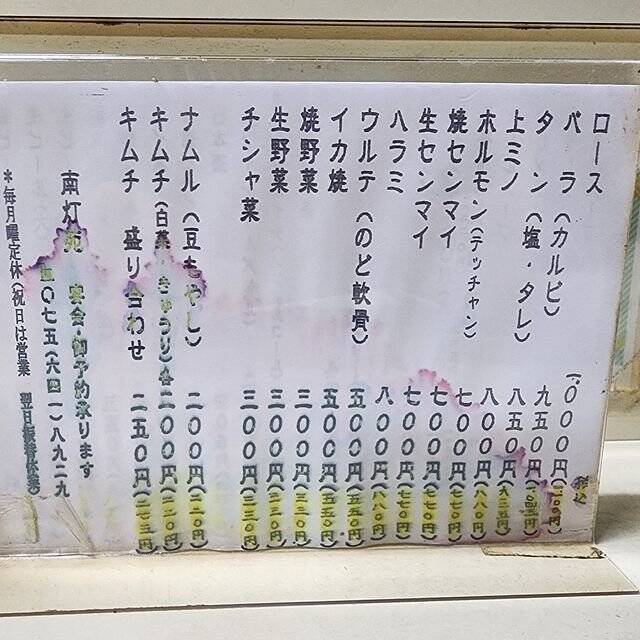 税込
ロース 一、〇〇〇円(一一〇〇円)
バラ(カルビ) 九五〇円(一〇四五円)
タン(塩・タレ) 八五〇円(九三五円)
上ミノ 八〇〇円(八八〇円)
ホルモン(テッチャン) 七〇〇円(七七〇円)
焼センマイ 七〇〇円(七七〇円)
生センマイ 七〇〇円(七七〇円)
ハラミ 八〇〇円(八八〇円)
ウルテ(のど軟骨) 五〇〇円(五五〇円)
イカ焼 五〇〇円(五五〇円)
焼野菜 三〇〇円(三三〇円)
生野菜 三〇〇円(三三〇円)
チシャ菜 三〇〇円(三三〇円)
ナムル(豆もやし) 二〇〇円(二二〇円)
キムチ(白菜・きゅうり)各二〇〇円(二二〇円)
キムチ 盛り合わせ 二五〇円(二七五円)
南灯苑 宴会・御予約承ります
〇七五(六四一)八九二九
*毎月曜定休(祝日は営業 翌日振替休業)